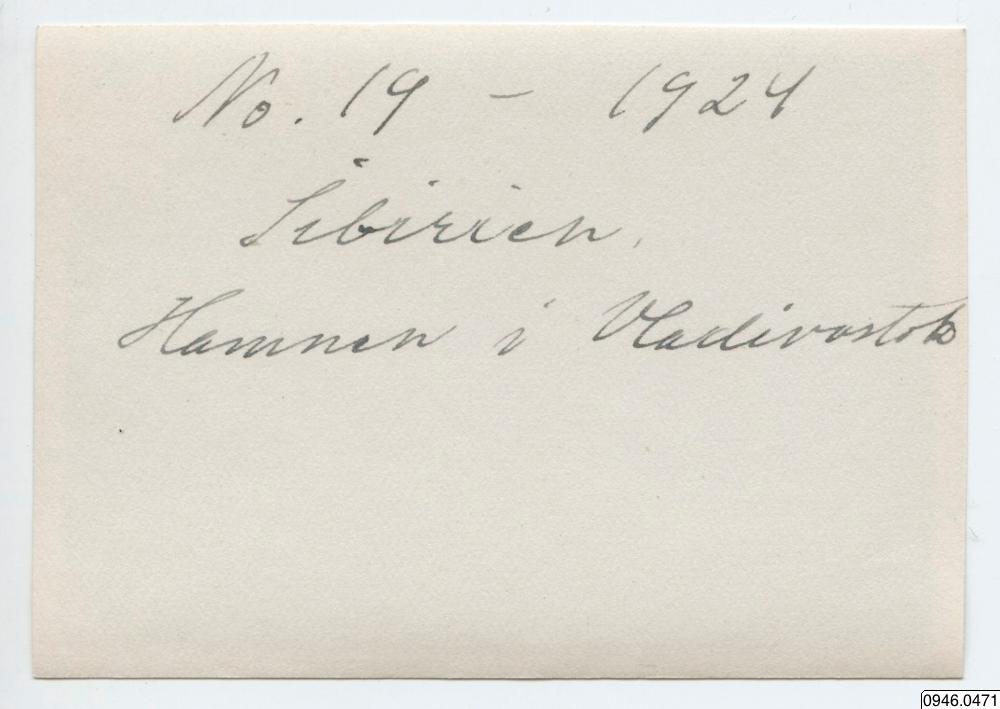 No. 19 – 1924
Sibirien,
Hamnen i Vladivostok
0946.0471